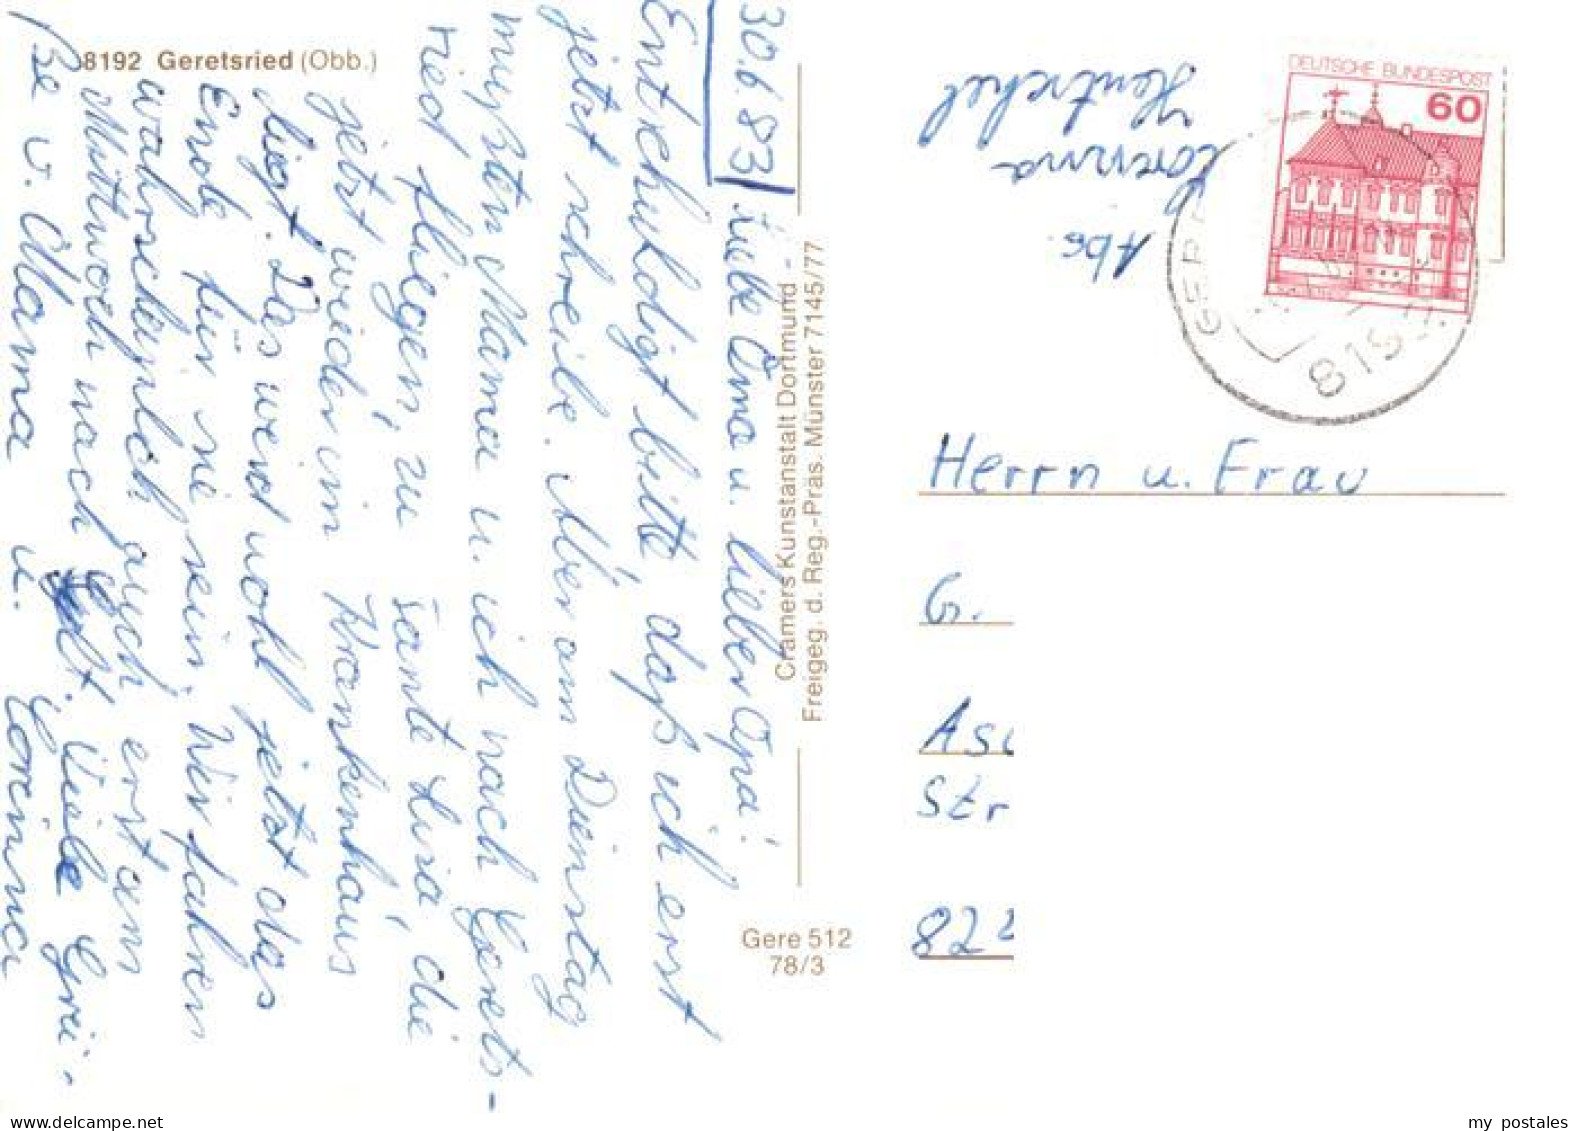 8192 Geretsried (Obb.)
30.6.83
Liebe Oma u. lieber Opa!
Entschuldigt bitte, daß ich erst
jetzt schreibe. Aber am Dienstag
mußten Mama u. ich nach Gerets-
ried fliegen, zu Tante Luia, die
jetzt wieder im Krankenhaus
liegt. Das wird wohl jetzt das
Ende für sie sein. Wir fahren
wahrscheinlich auch erst am
Mittwoch nach Viele Grü-
ße v. Mama u. Corinna
Cramers Kunstanstalt Dortmund
Freigeg. d. Reg.-Präs. Münster 7145/77
Gere 512
78/3
Abs.
Corinna
Hentschel
DEUTSCHE BUNDESPOST
60
Herrn u. Frau
G.
As
Str
822
my postales